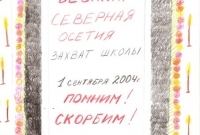 БЕСЛАН
СЕВЕРНАЯ
ОСЕТИЯ
ЗАХВАТ ШКОЛЫ
1 СЕНТЯБРЯ 2004г.
ПОМНИМ!
СКОРБИМ!